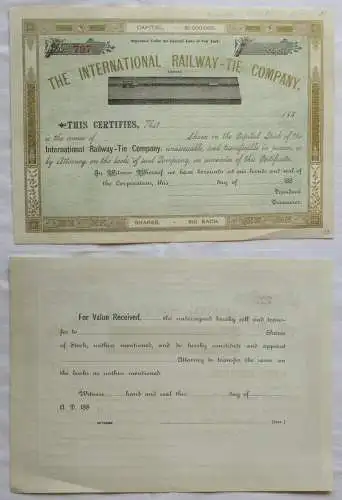 CAPITAL, $2,000,000.
Organized Under the General Laws of New York.
No. 797
THE INTERNATIONAL RAILWAY-TIE COMPANY,
188
THIS CERTIFIES, That
is the owner of Shares in the Capital Stock of the
International Railway-Tie Company, and transferable in person or
by Attorney on the books of said Company, on surrender of this Certificate.
In Witness Whereof we have hereunto set our hands and seal of
the Corporation, this day of 188
President
Treasurer
SHARES, $10 EACH.
For Value Received, the undersigned hereby sell and trans-
fer to Shares
of Stock, within mentioned, and do hereby constitute and appoint
Attorney to transfer the same on
the books as within mentioned.
Witness hand and seal this day of
A. D. 188
WITNESS